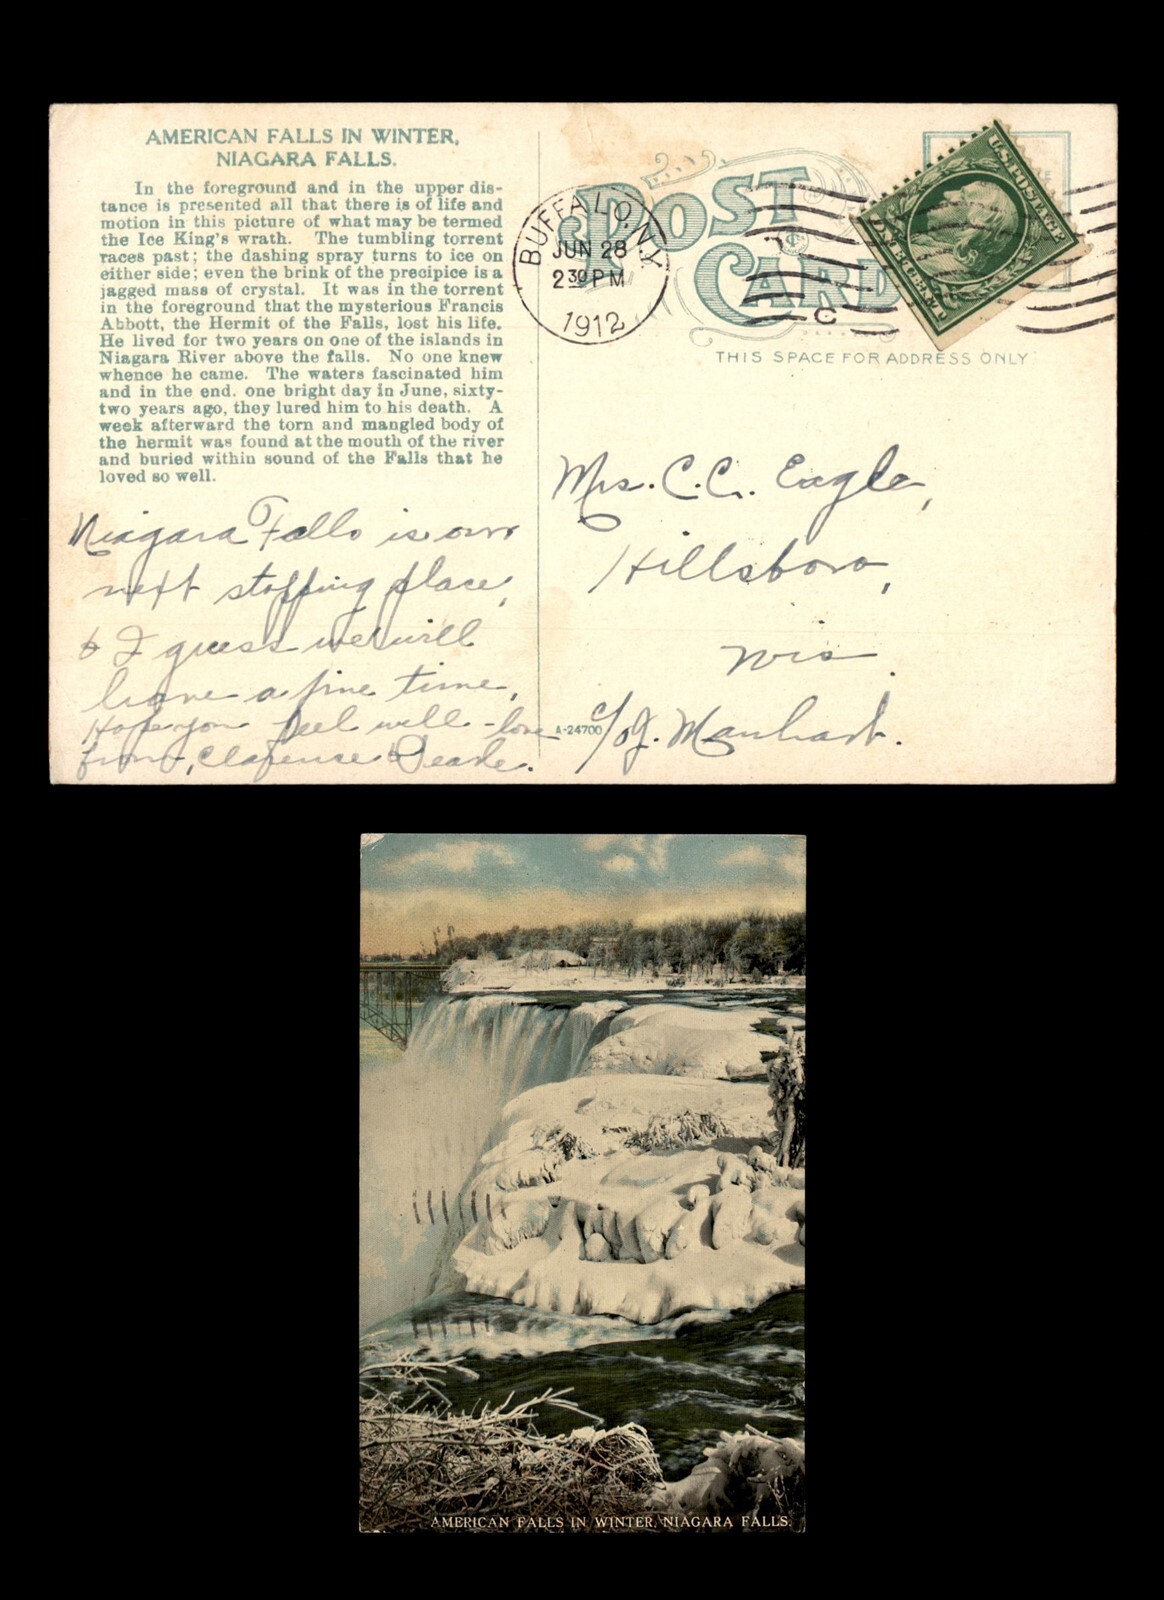 AMERICAN FALLS IN WINTER,
NIAGARA FALLS.
In the foreground and in the upper dis-
tance is presented all that there is of life and
motion in this picture of what may be termed
the Ice King's wrath. The tumbling torrent
races past; the dashing spray turns to ice on
either side; even the brink of the precipice is a
jagged mass of crystal. It was in the torrent
in the foreground that the mysterious Francis
Abbott, the Hermit of the Falls, lost his life.
He lived for two years on one of the islands in
Niagara River above the falls. No one knew
whence he came. The waters fascinated him
and in the end, one bright day in June, sixty-
two years ago, they lured him to his death. A
week afterward the torn and mangled body of
the hermit was found at the mouth of the river
and buried within sound of the Falls that he
loved so well.
Niagara Falls is our
next stopping place,
& I guess we will
have a fine time,
Hope you feel well - love
from, Clarence
POST
CARD
BUFFALO, N.Y.
JUN 28
2 30 PM
1912
C
U.S. POSTAGE
ONE CENT
THIS SPACE FOR ADDRESS ONLY
Mrs. C.C. Eagle,
Hillsboro,
Wis.
A-24700
c/o J. Manhart.
AMERICAN FALLS IN WINTER, NIAGARA FALLS.